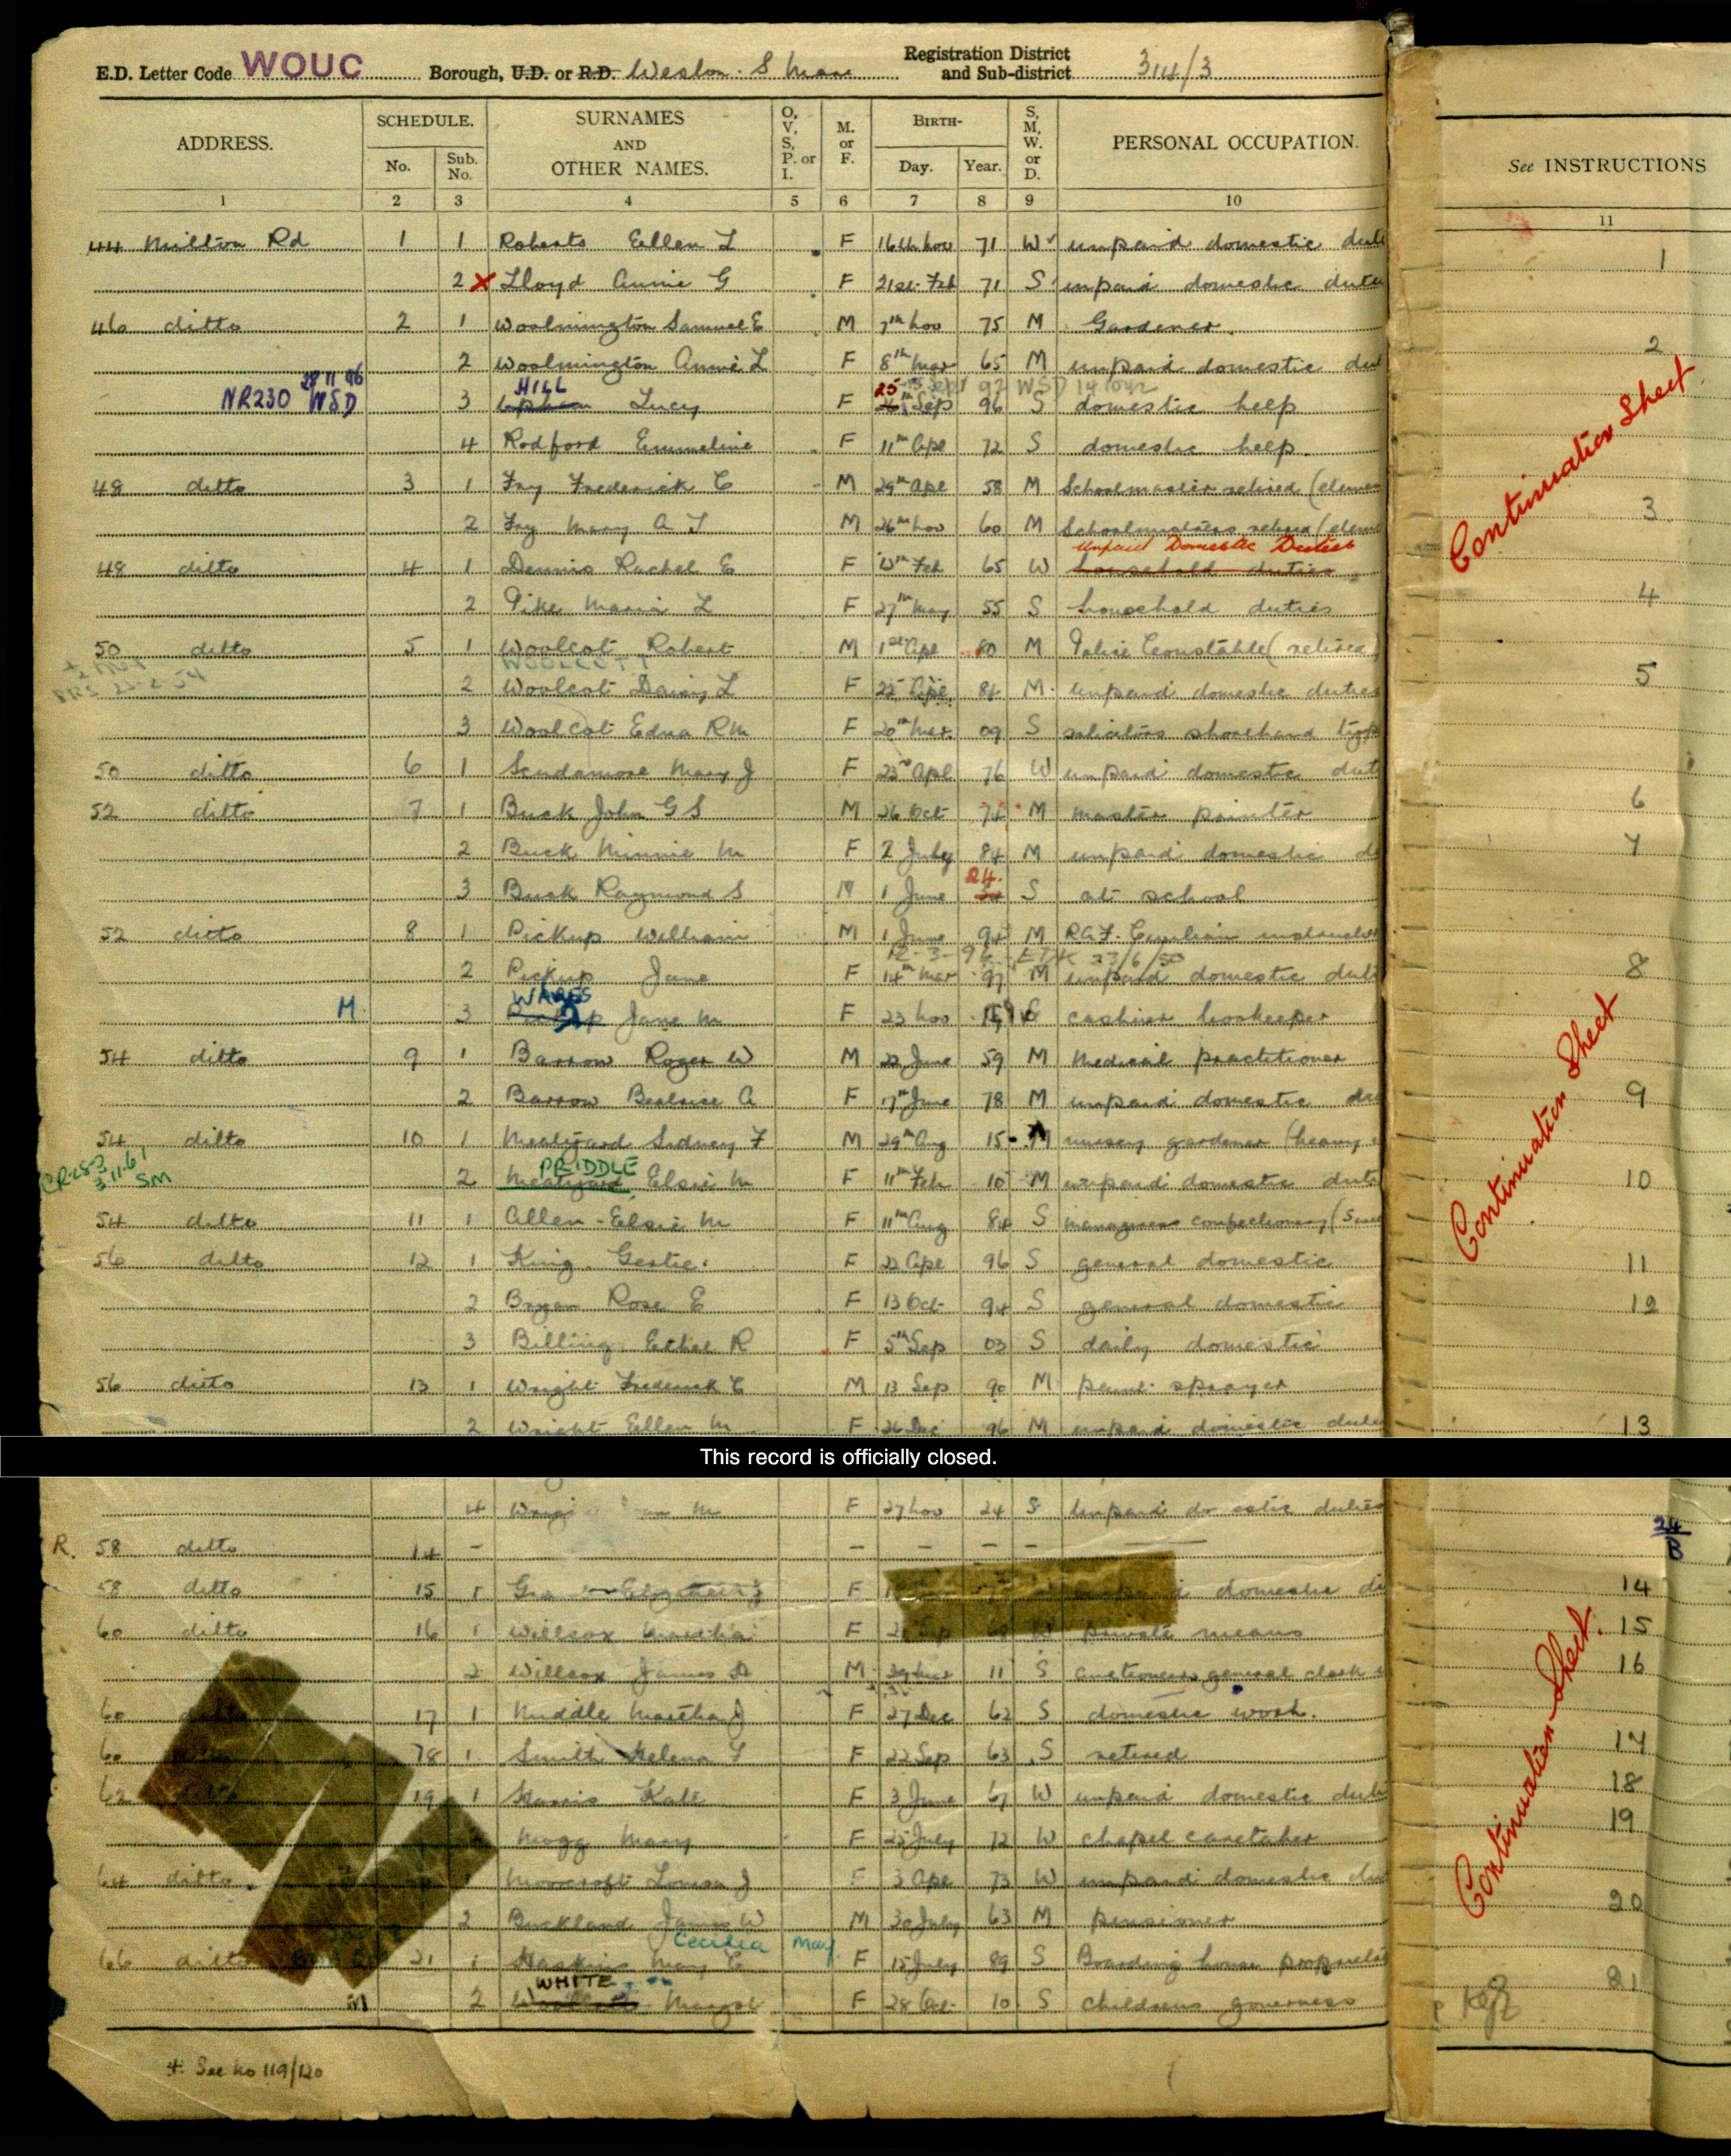 E.D. Letter Code WOUC Borough, U.D. or R.D. Weston. S. Mare Registration District and Sub-district 314/3
ADDRESS. SCHEDULE. No. Sub. No. SURNAMES AND OTHER NAMES. O, V, S, P. or I. M. or F. BIRTH- Day. Year. S, M, W. or D. PERSONAL OCCUPATION. See INSTRUCTIONS
1 2 3 4 5 6 7 8 9 10 11
44 Milton Rd 1 1 Roberts Ellen L F 16th Nov 71 W unpaid domestic duti 1
2 X Lloyd Annie G F 21st Feb 71 S unpaid domestic dutie
46 ditto 2 1 Woolmington Samuel E M 7th Nov 75 M Gardener. 2
2 Woolmington Annie L F 8th Mar 65 M unpaid domestic dut
28 11 46 HILL 25 Sept 92 WSD
NR230 WSD 3 Lucy F Sep 96 S domestic help
4 Rodford Emmeline F 11th Ape 72 S domestic help.
Continuation Sheet
48 ditto 3 1 Fry Frederick C M 29th Ape 58 M Schoolmaster retired (elemen 3
2 Fry Mary A T M 26th Nov 60 M Schoolmistress retired (elem
Unpaid Domestic Duties
48 ditto 4 1 Dennis Rachel E F Feb 65 W household duties 4
2 Pike Maria L F 27th May 55 S household duties
50 ditto 5 1 Woolcot Robert M 1st Ape 80 M Police Constable (retired) 5
WOOLCOTT
2 Woolcot Daisy L F 25 Ape 84 M unpaid domestic duties
3 Woolcot Edna R M F 20th Mar 09 S solicitors shorthand typ
50 ditto 6 1 Scudamore Mary J F 23rd Apl 76 W unpaid domestic dut 6
52 ditto 7 1 Buck John G S M 26 Oct 74 M master painter 7
2 Buck Minnie M F 2 July 84 M unpaid domestic d
24.
3 Buck Raymond S M 1 June S at school
52 ditto 8 1 Pickup William M 1 June 94 M RAF. Civilian instructor 8
12-3-96 23/6/50
2 Pickup Jane F 14th Mar 97 M unpaid domestic duti
WARES
M 3 Pickup Jane M F 23 Nov S cashier bookeeper
Continuation Sheet
54 ditto 9 1 Barrow Roger W M 22 June 59 M Medical practitioner 9
2 Barrow Beatrice A F 17th June 78 M unpaid domestic du
54 ditto 10 1 Meatyard Sidney F M 29th Aug 15 M nursery gardener (heavy 10
PRIDDLE
SM 2 Meatyard Elsie M F 11th Feb 10 M unpaid domestic duti
54 ditto 11 1 Allen - Elsie M F 11th Aug 84 S manageress confectionery ( 11
56 ditto 12 1 King. Gertie. F 22 Ape 96 S general domestic 12
2 Bryan Rose E F 13 Oct 94 S general domestic
3 Billing Ethel R F 5th Sep 03 S daily domestic
56 ditto 13 1 Wright Frederick C M 13 Sep 90 M paint sprayer 13
2 Wright Ellen M F 26 Dec 96 M unpaid domestic duti
This record is officially closed.
4 M F 27 Nov 24 S unpaid do estic duties
24
B
R. 58 ditto 14 - - - - - 14
58 ditto 15 1 F domestic du 15
60 ditto 16 1 Willcox Martha F W private means 16
2 Willcox James D M 11 S auctioneers general clerk
60 17 1 Middle Martha J F 27 Dec 62 S domestic work. 17
60 18 1 Smith Helena F 22 Sep 63 S retired 18
62 ditto 19 1 Harris Kate F 3 June 67 W unpaid domestic duti 19
Mogg Mary F 25 July 72 W chapel caretaker
Continuation Sheet.
64 ditto Moorcroft Louisa J F 3 Ape 73 W unpaid domestic du 20
2 Buckland James W M 30 July 63 M pensioner
Cecilia May
66 ditto 21 1 Haskins May C F 15 July 89 S Boarding house propriet 21
WHITE
M 2 Margot F 28 10 S childrens governess
+. See No 119/120